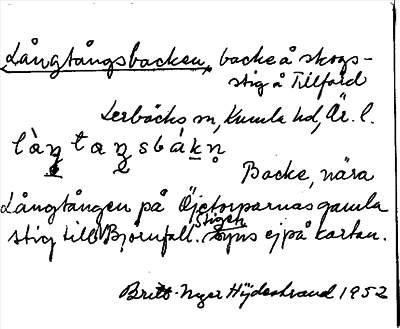 Långtångsbacken, backe å skogs-
stig å Tillfard
Lerbäcks sn, Kumla hd, Är. l.
Backe, nära
Långtången på Öjetorparnas gamla
stig till Björnfall. Stigen syns ej på kartan.
Britt-Inger Hijdestrand 1952